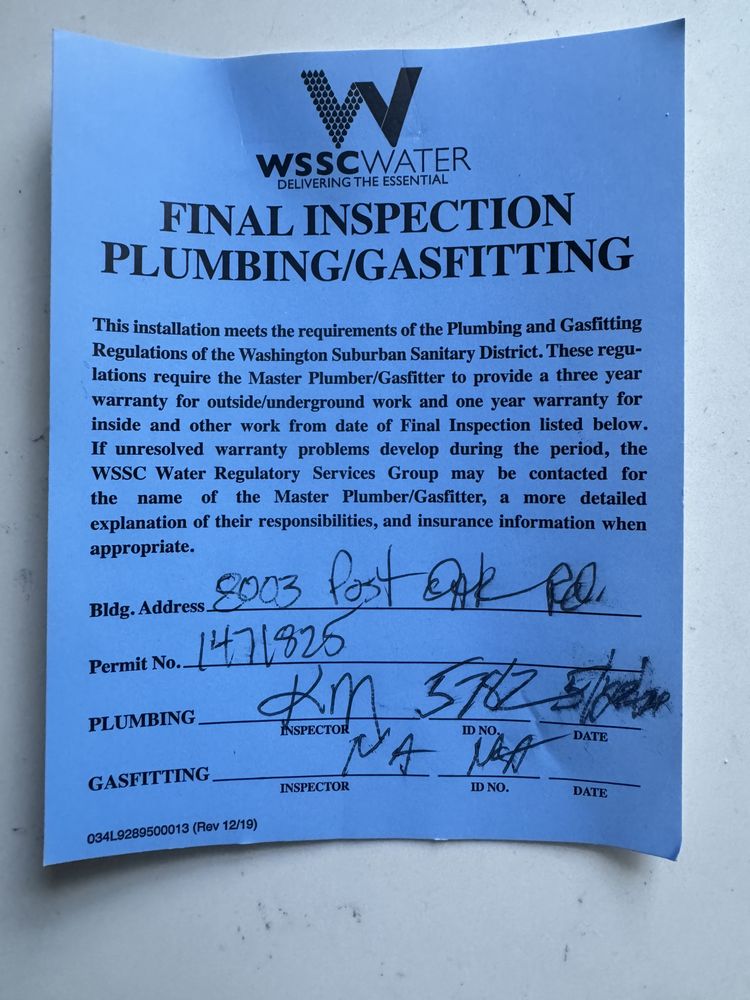 WSSCWATER
DELIVERING THE ESSENTIAL
FINAL INSPECTION
PLUMBING/GASFITTING
This installation meets the requirements of the Plumbing and Gasfitting
Regulations of the Washington Suburban Sanitary District. These regu-
lations require the Master Plumber/Gasfitter to provide a three year
warranty for outside/underground work and one year warranty for
inside and other work from date of Final Inspection listed below.
If unresolved warranty problems develop during the period, the
WSSC Water Regulatory Services Group may be contacted for
the name of the Master Plumber/Gasfitter, a more detailed
explanation of their responsibilities, and insurance information when
appropriate.
Bldg. Address 8003 Post Oak Rd.
Permit No. 1471825
PLUMBING KM
INSPECTOR ID NO. DATE
GASFITTING NA NA
INSPECTOR ID NO. DATE
034L9289500013 (Rev 12/19)